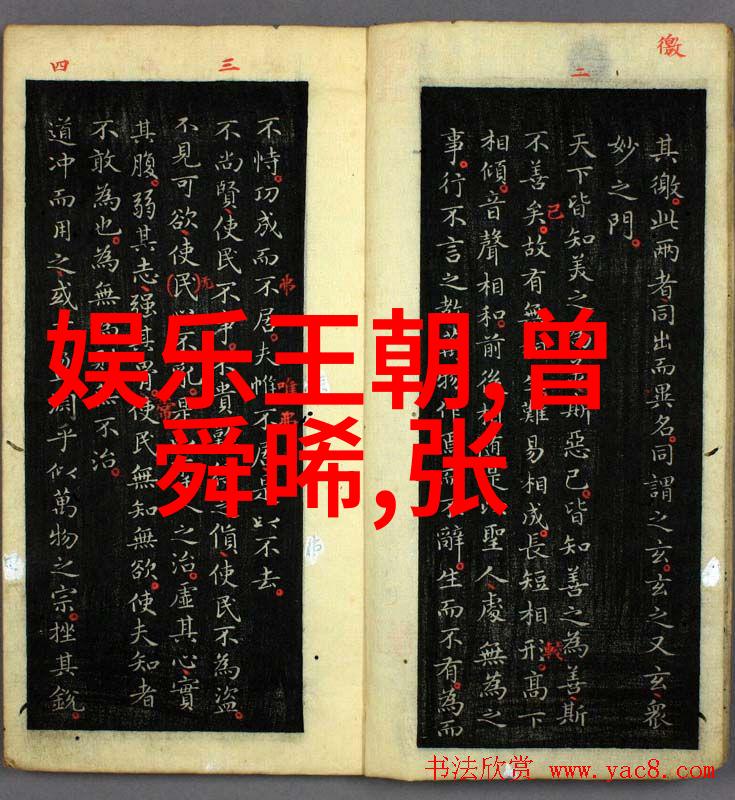 徼
二
其徼。此兩者、同出而異名。同謂之玄。玄之又玄、衆
妙之門。
天下皆知美之
斯惡已。皆知善之為善斯
不善矣。故有無
難易相成。長短相形。髙下
己
較
相傾。音聲相和。前後
是以聖人處無為之
事。行不言之教
辭。生而不有。為而
三
四
不恃。功成而不居。夫惟不居是以不去。
弗
唯
不尚賢、使民不爭。不貴
之貨、使民不為盜。
不見可欲、使(民)
之治。虛其心、實
无
其腹。弱其志、强其骨。使民無知無欲。使夫知者
不敢為也。為無
不治。
道冲而用之、或
乎似萬物之宗。挫其銳。
娱乐王朝,曾
舜晞,张
书法欣赏 www.yac8.com